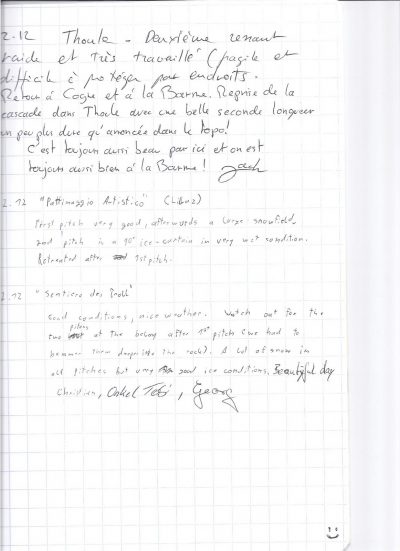 2.12 Thoule - Deuxième ressaut
raide et très travaillé (fragile et
difficile à protéger par endroits.
Retour à Cogne et à la Barme. Reprise de la
cascade dans Thoule avec une belle seconde longueur
un peu plus dure qu'anoncée dans le topo!
C'est toujours aussi beau par ici et on est
toujours aussi bien à la Barme!
2.12 "Pattinaggio Artistico" (Lillaz)
First pitch very good, afterwards a large snowfield,
2nd pitch is a 10° ice-curtain in very wet condition.
Retreated after 1st pitch.
2.12 "Sentiero dei Troll"
Good conditions, nice weather. Watch out for the
two pitons at the belay after 1st pitch (we had to
hammer them deeper into the rock). A lot of snow in
all pitches but very good ice conditions. Beautiful day
Christian, Onkel Tobi, Georg